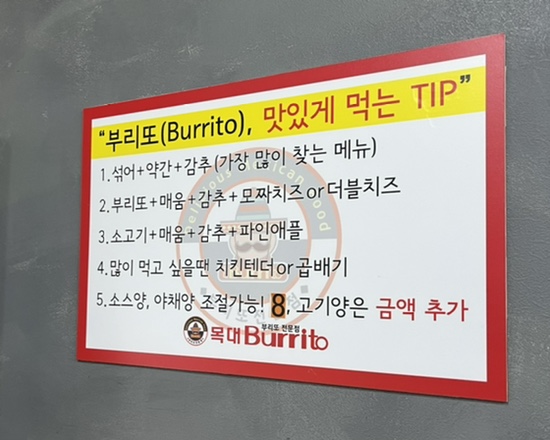 “부리또(Burrito), 맛있게 먹는 TIP”
1. 섞어+약간+감추(가장 많이 찾는 메뉴)
2. 부리또+매움+감추+모짜치즈or더블치즈
3. 소고기+매움+감추+파인애플
4. 많이 먹고 싶을땐 치킨텐더or곱배기
5. 소스양, 야채양 조절가능! 8, 고기양은 금액 추가
부리또 전문점
목대Burrito